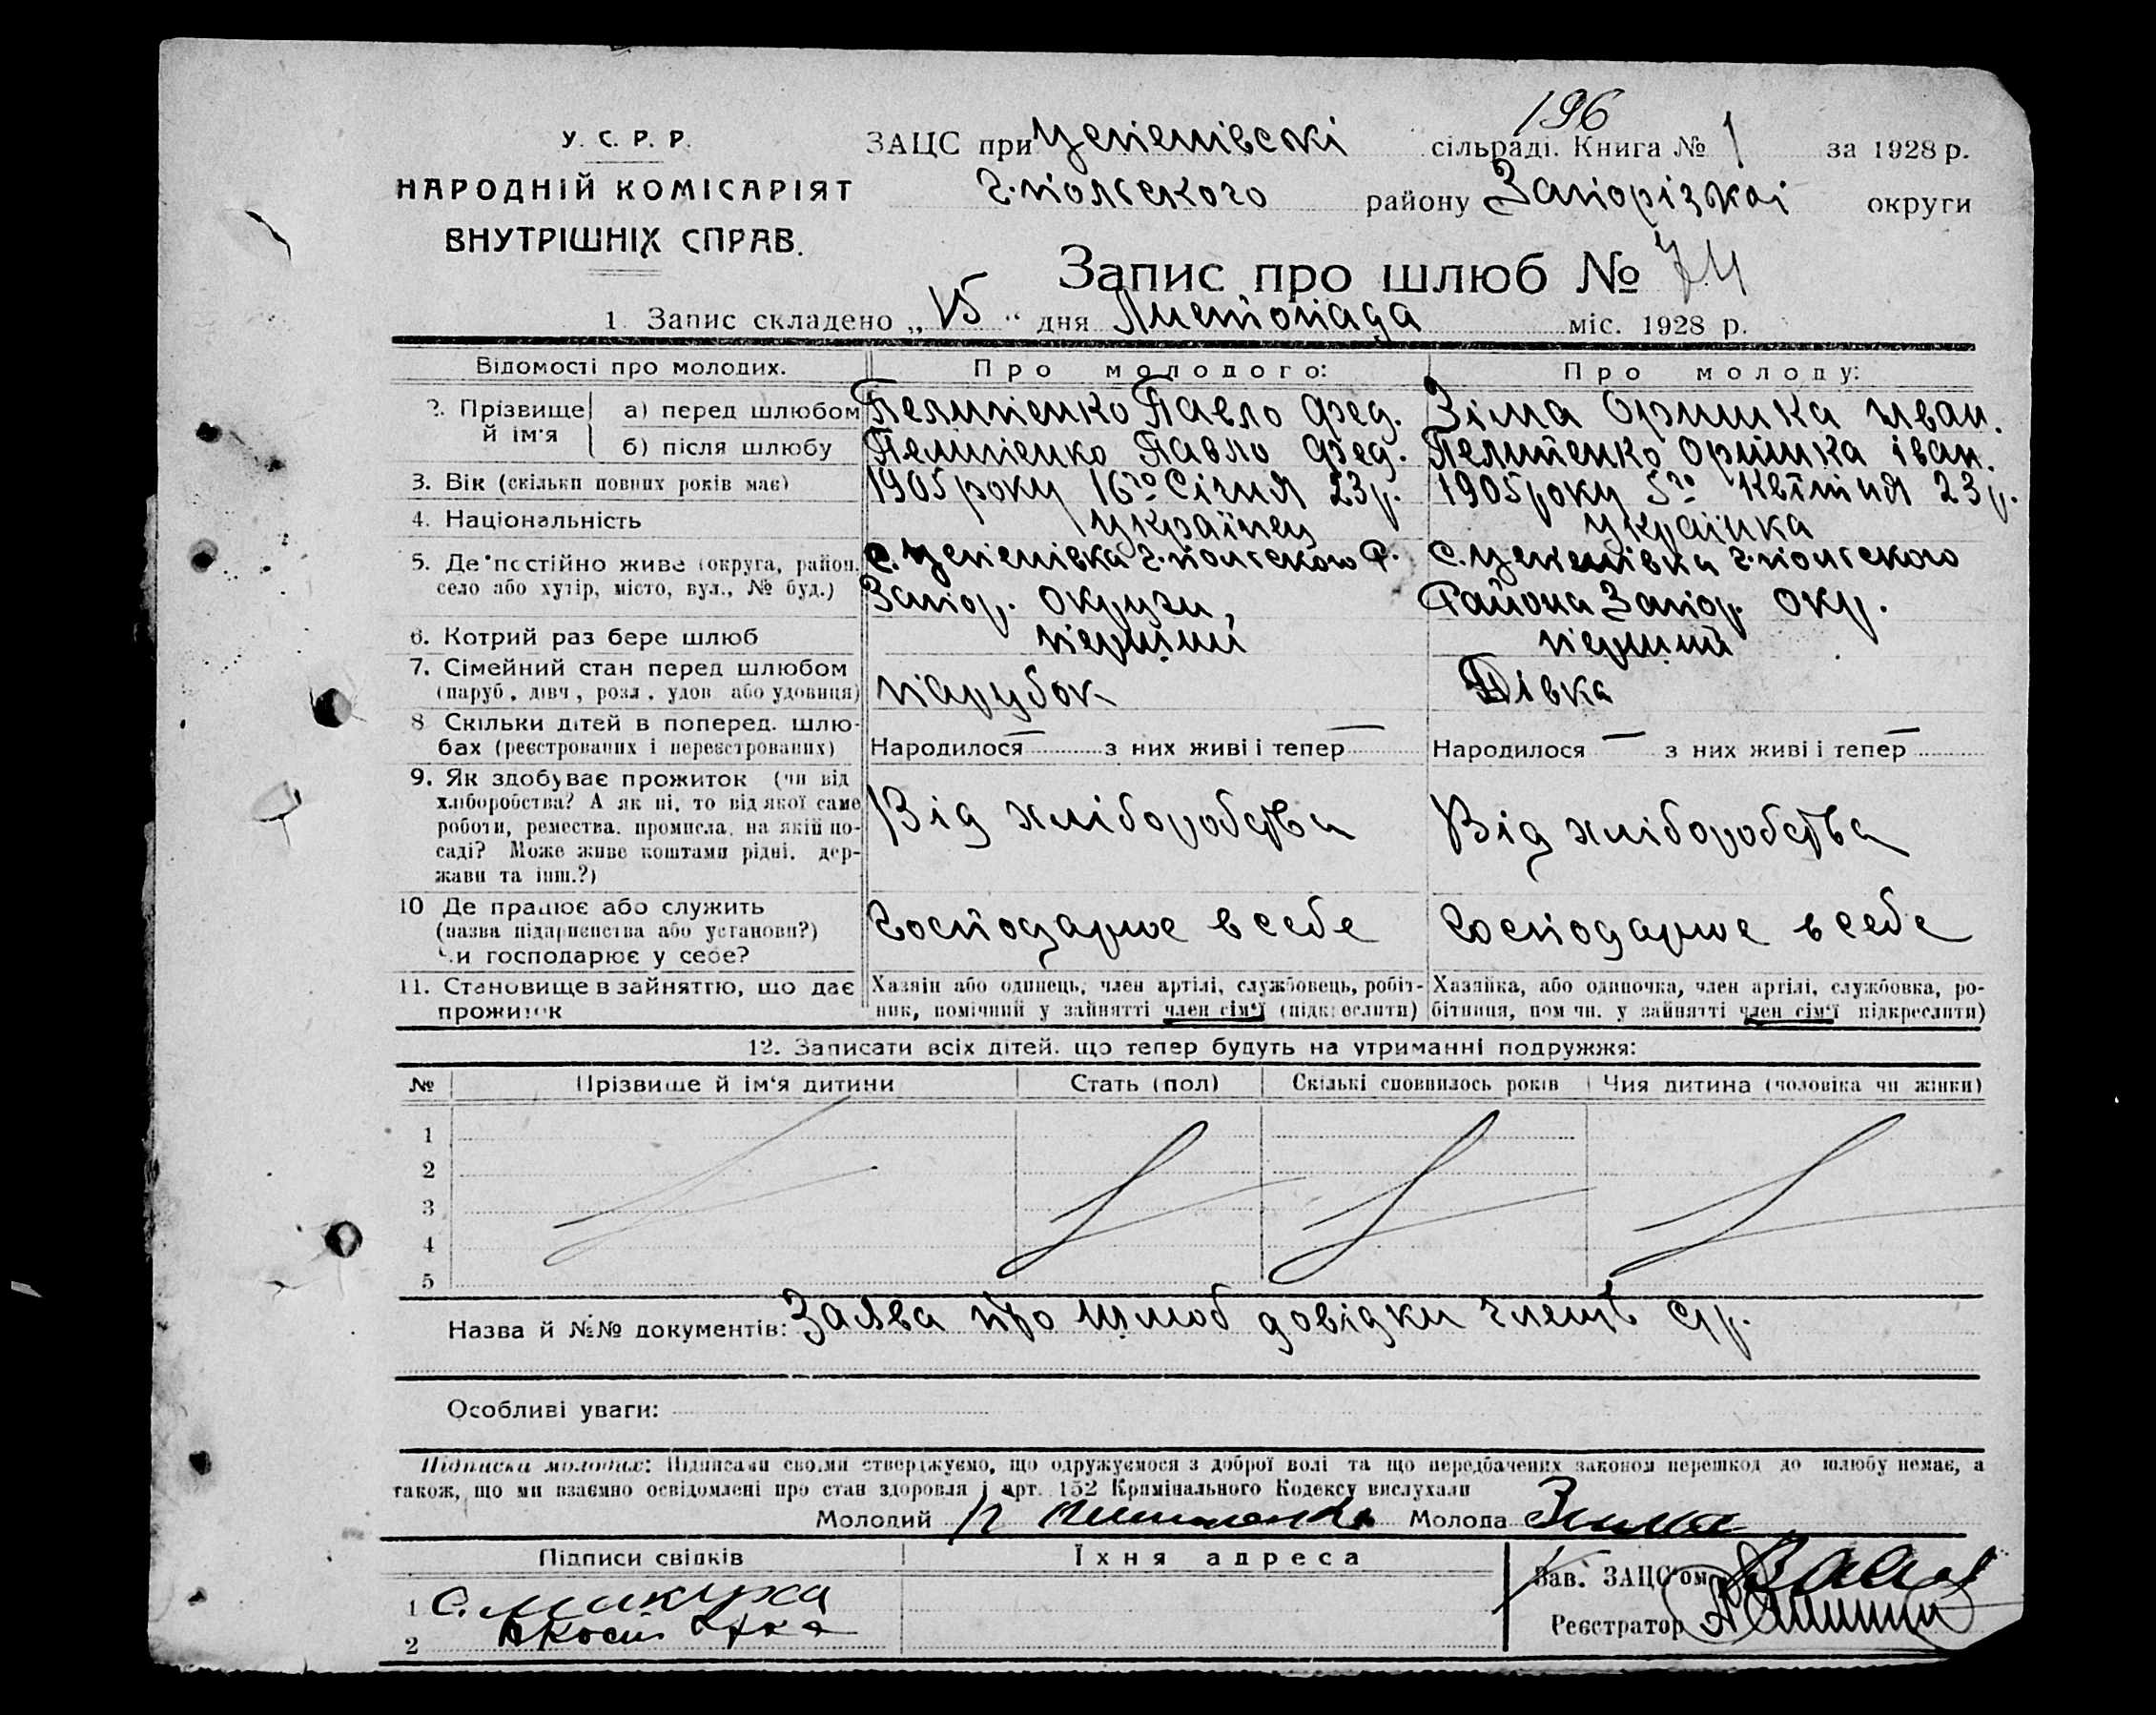 196
У. С. Р. Р.
НАРОДНІЙ КОМІСАРІЯТ
ВНУТРІШНІХ СПРАВ.
ЗАЦС при Цепепівскі сільраді. Книга № 1 за 1928 р.
Г.польского району Запорізкоі округи
Запис про шлюб № 74
1. Запис складено „15“ дня Листопада міс. 1928 р.
Відомості про молодих. Про молодого: Про молоду:
2. Прізвище й ім'я
а) перед шлюбом Пелипенко Павло Фед. Зіма Оришка Иван.
б) після шлюбу Пелипенко Павло Фед. Пелипенко Оришка іван.
3. Вік (скільки повних років має) 1905 року 16го Січня 23 р. 1905 року 5го Квітня 23 р.
4. Національність Українец Українка
5. Де постійно живе (округа, район, с. Цепепівка Г.польского Р. с. Цепепівка Г.польского
село або хутір, місто, вул., № буд.) Запор. Округи, Района Запор. Окр.
6. Котрий раз бере шлюб перший перший
7. Сімейний стан перед шлюбом
(паруб., дівч., розл., удов. або удовиця) парубок Дівка
8. Скільки дітей в поперед. шлю-
бах (реєстрованих і нереєстрованих) Народилося — з них живі і тепер — Народилося — з них живі і тепер —
9. Як здобуває прожиток (чи від
хліборобства? А як ні, то від якої саме
роботи, ремества, промисла, на якій по- Від хліборобства Від хліборобства
саді? Може живе коштами рідні, дер-
жави та інш.?)
10 Де працює або служить
(назва підприємства або установи?) Господарює в себе Господарює в себе
Чи господарює у себе?
11. Становище в зайняттю, що дає Хазяїн або одинець, член артілі, службовець, робіт- Хазяйка, або одиночка, член артілі, службовка, ро-
прожиток ник, помічний у зайнятті член сім'ї (підкреслити) бітниця, пом чн. у зайнятті член сім'ї підкреслити)
12. Записати всіх дітей, що тепер будуть на утриманні подружжя:
№ Прізвище й ім'я дитини Стать (пол) Скількі сповнилось років Чия дитина (чоловіка чи жінки)
1
2
3
4
5
Назва й №№ документів: Заява про шлюб довідки
Особливі уваги:
Підписка молодих: Підписами своїми стверджуємо, що одружуємося з доброї волі та що передбачених законом перешкод до шлюбу немає, а
також, що ми взаємно освідомлені про стан здоровля і арт. 152 Крамінального Кодексу вислухали
Молодий Молода Зима
Підписи свідків Їхня адреса
Зав. ЗАЦС'ом
1 С. Микуха
Реєстратор
2